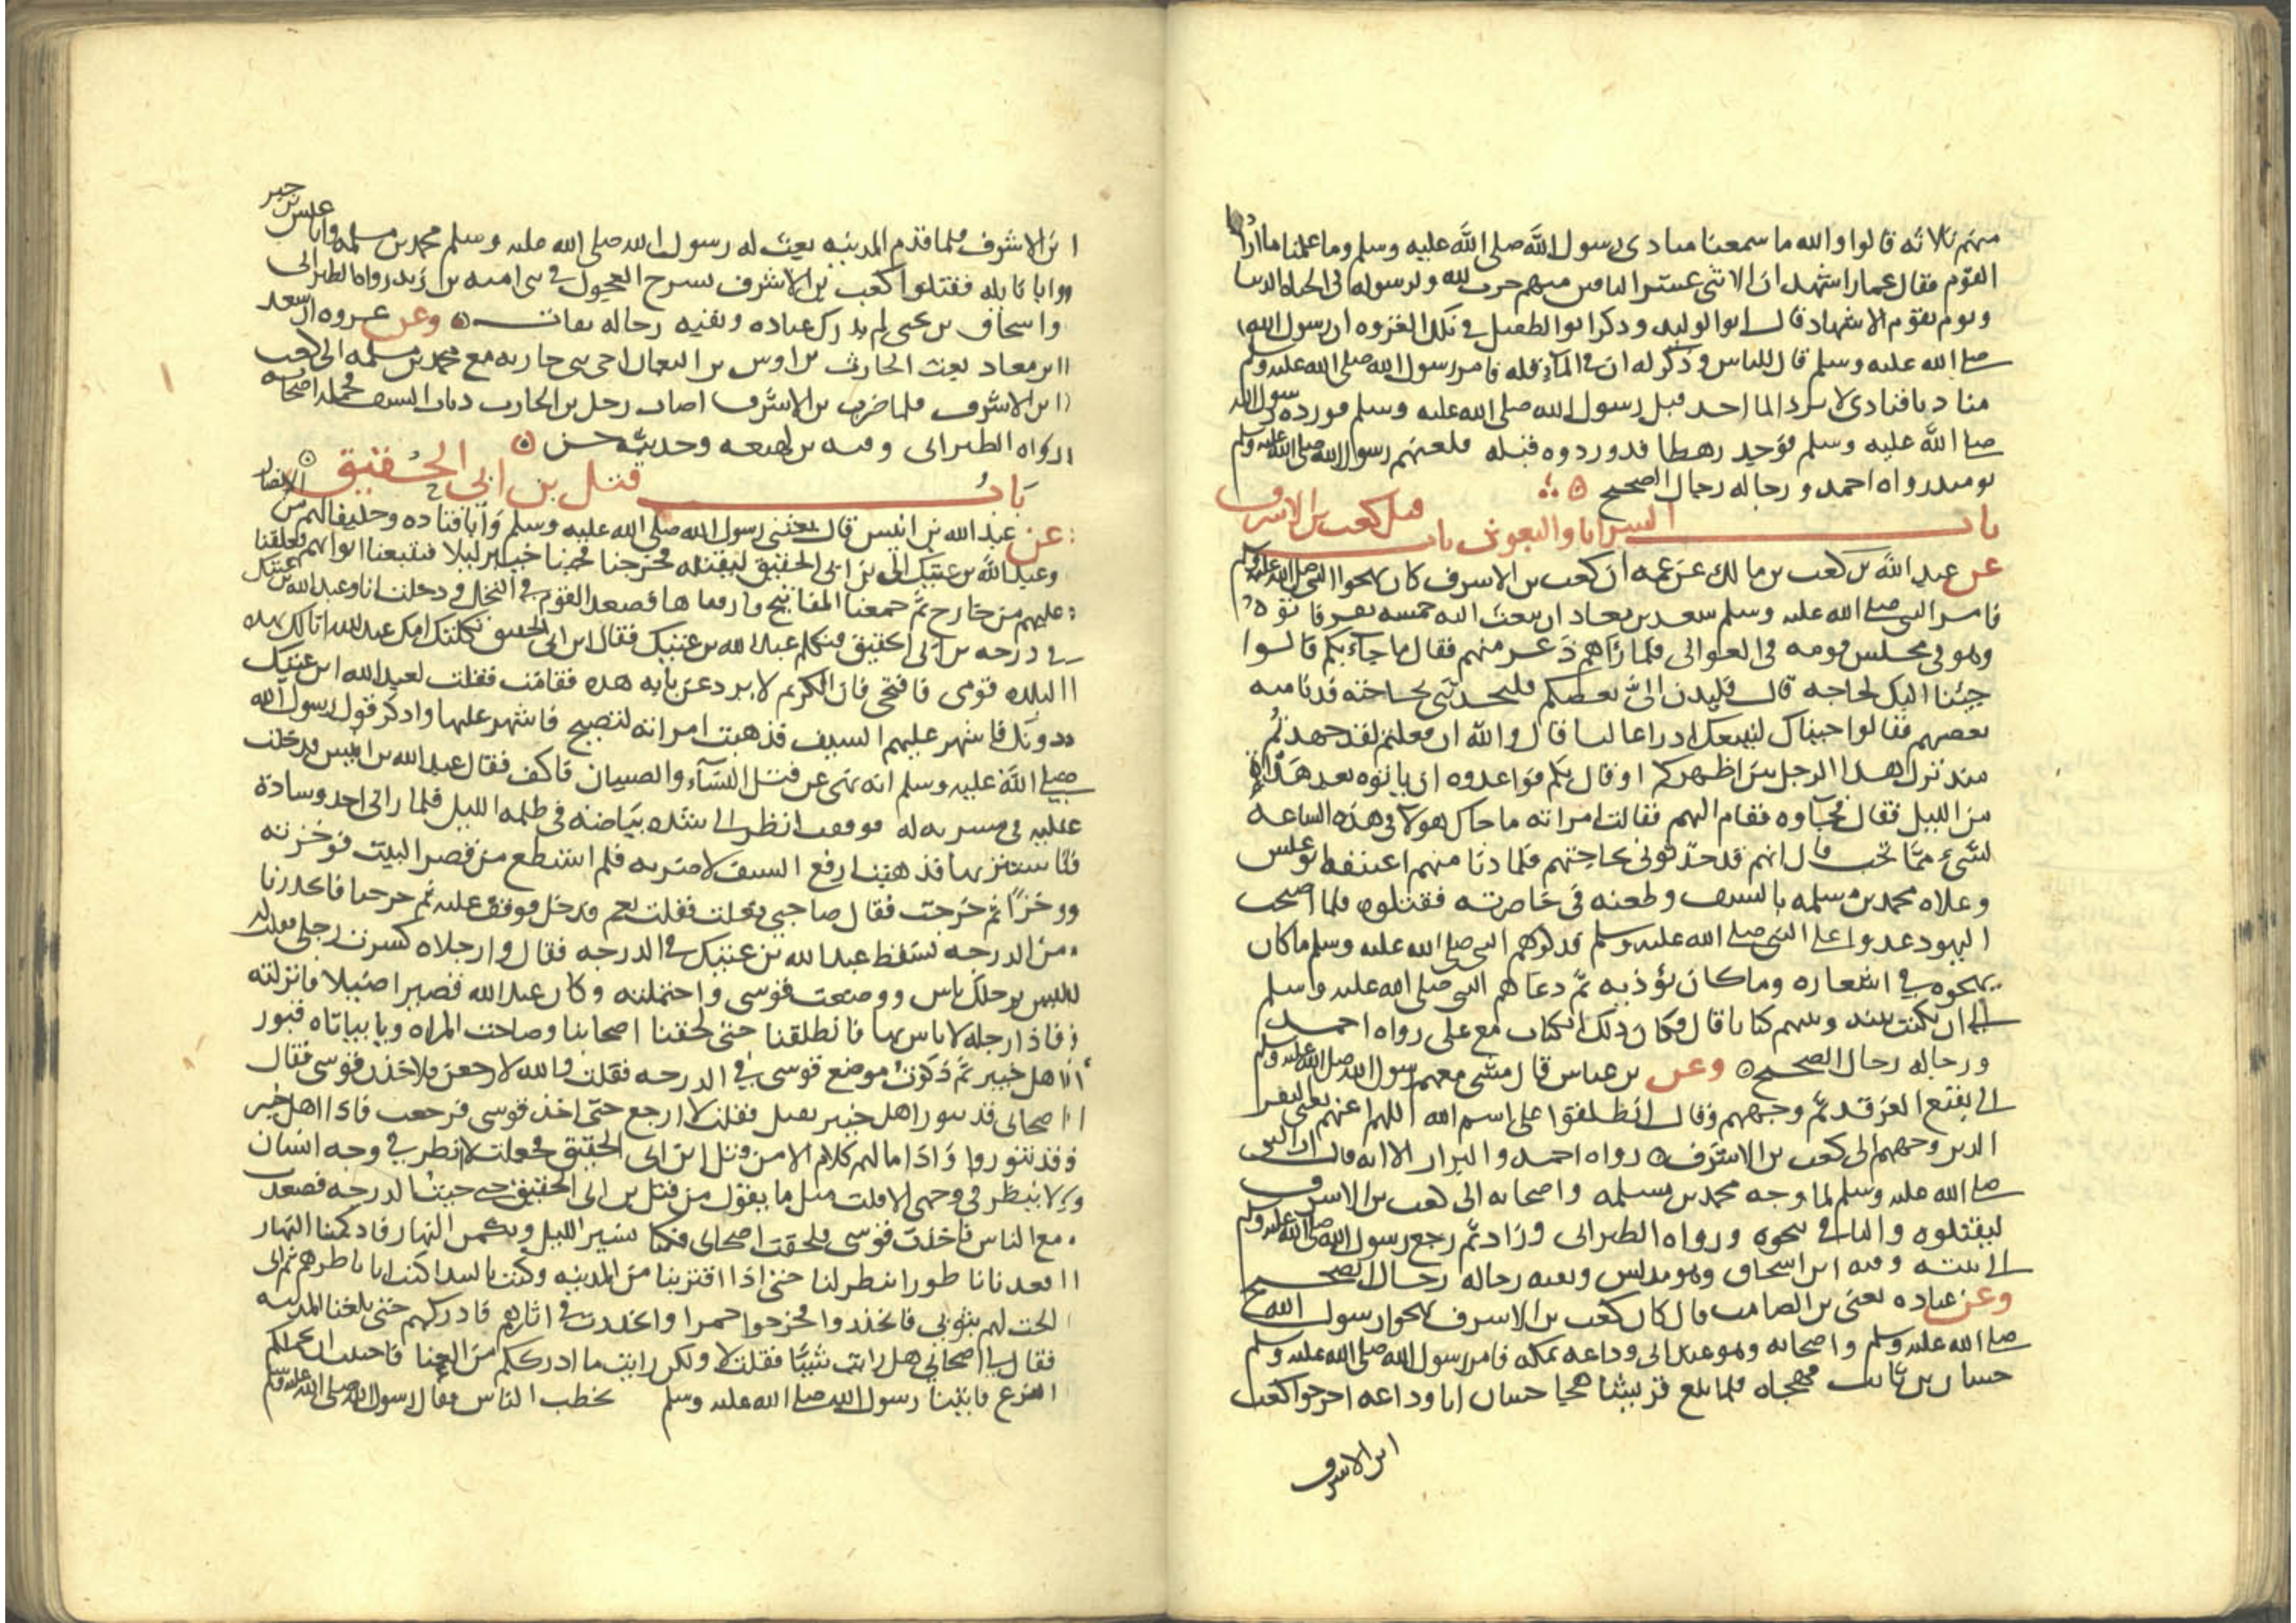 منهم ثلاثة قالوا والله ما سمعنا منادى رسول الله صلى الله عليه وسلم وما علمنا ما اراد
القوم فقال عمار اشهد ان الاثنى عشر الباقين منهم حرب لله ولرسوله فى الحياة الدنيا
ويوم يقوم الاشهاد قال ابو الوليد وذكر ابو الطفيل فى تلك الغزوه ان رسول الله
صلى الله عليه وسلم قال للناس وذكر له ان فى الماء قله فامر رسول الله صلى الله عليه وسلم
مناديا فنادى لا يرد الماء احد قبل رسول الله صلى الله عليه وسلم فورده رسول الله
صلى الله عليه وسلم فوجد رهطا قد وردوه قبله فلعنهم رسول الله صلى الله عليه وسلم
يومئذ رواه احمد ورجاله رجال الصحيح
باب السرايا والبعوث باب قتل كعب بن الاشرف
عن عبد الله بن كعب بن مالك عن عمه ان كعب بن الاشرف كان يهجوا النبي صلى الله عليه وسلم
فامر النبي صلى الله عليه وسلم سعد بن معاذ ان يبعث اليه خمسه نفر فاتوه
وهو فى مجلس قومه فى العوالى فلما رآهم ذعر منهم فقال ما جاء بكم قالوا
جئنا اليك لحاجه قال فليدن الىّ بعضكم فليحدثنى بحاجته فدنا منه
بعضهم فقالوا جيناك لنبيعك ادراعا لنا قال والله ان فعلتم لقد جهدتم
منذ نزل هذا الرجل بين اظهركم او قال بكم فواعدوه ان ياتوه بعد هداة
من الليل فقال فجاوه فقام اليهم فقالت امراته ما جاك هولا فى هذه الساعه
لشىء مما تحب قال انهم قد حدثونى بحاجتهم فلما دنا منهم اعتنقه ابو عبس
وعلاه محمد بن مسلمه بالسيف وطعنه فى خاصرته فقتلوه فلما اصبحت
اليهود غدوا على النبى صلى الله عليه وسلم فذكرهم النبى صلى الله عليه وسلم ما كان
يهجوه فى اشعاره وما كان يؤذيه ثم دعاهم النبى صلى الله عليه وسلم
الى ان يكتب بينه وبينهم كتابا قال وكان ذلك الكتاب مع على رواه احمد
ورجاله رجال الصحيح وعن بن عباس قال مشى معهم رسول الله صلى الله عليه وسلم
الى بقيع الغرقد ثم وجههم وقال انطلقوا على اسم الله اللهم اعنهم يعنى النفر
الذين وجههم الى كعب بن الاشرف رواه احمد والبزار الا انه قال ان النبى
صلى الله عليه وسلم لما وجه محمد بن مسلمه واصحابه الى كعب بن الاشرف
ليقتلوه والباقى نحوه ورواه الطبرانى وزاد ثم رجع رسول الله صلى الله عليه وسلم
الى بيته وفيه ابن اسحاق وهو مدلس وبقيه رجاله رجال الصحيح
وعن عباده يعنى بن الصامت قال كان كعب بن الاشرف يهجوا رسول الله
صلى الله عليه وسلم واصحابه وهو عند ابى وداعه بمكه فامر رسول الله صلى الله عليه وسلم
حسان بن ثابت فهجاه فلما بلغ قريشا هجيا حسان ابا وداعه اخرجوا كعب
ابن الاشرف
بن الاشرف فلما قدم المدينه بعث له رسول الله صلى الله عليه وسلم محمد بن مسلمه وابا عبس بن جبر
وابا نايله فقتلوا كعب بن الاشرف بسرح العجول فى بنى اميه بن زيد رواه الطبرانى
واسحاق بن يحيى لم يدرك عباده وبقيه رجاله ثقات وعن عروه ان سعد
بن معاذ بعث الحارث بن اوس بن النعمان اخى بنى حارثه مع محمد بن مسلمه الى كعب
بن الاشرف فلما ضرب بن الاشرف اصاب رجل بن الحارث ذباب السيف فحمله اصحابه
رواه الطبرانى وفيه بن لهيعه وحديثه حسن
باب قتل بن ابى الحقيق
عن عبد الله بن انيس قال بعثنى رسول الله صلى الله عليه وسلم وابا قتاده وحليفا لهم من الانصار
وعبد الله بن عتيك الى بن ابى الحقيق ليقتله فخرجنا فجئنا خيبر ليلا فتتبعنا ابوابهم فغلقنا
عليهم من خارج ثم جمعنا المفاتيح فصعد القوم فى النخل ودخلت انا وعبد الله بن عتيك
فى درجه بن ابى الحقيق فتكلم عبد الله بن عتيك فقال ابن ابى الحقيق ثكلتك امك عبد الله انا لك بهذه
البلده قومى فافتحى فان الكريم لا يرد عن بابه هذه فقامت فقلت لعبد الله ابن عتيك
دونك فاشهر عليهم السيف فذهبت امراته لتصيح فاشهر عليها واذكر قول رسول الله
صلى الله عليه وسلم انه نهى عن قتل النسآء والصبيان فاكف فقال عبد الله بن انيس فدخلت
عليه فى مشربه له فوقفت انظر الى شده بياضه فى ظلمه الليل فلما رانى اخذ وسادة
فاستتر بها فذهبت ارفع السيف لاضربه فلم استطع من قصر البيت فوخزته
وخزًا ثم خرجت فقال صاحبى فعلت فقلت نعم فدخل فوقف عليه ثم خرجنا فانحدرنا
من الدرجه فسقط عبد الله بن عتيك فى الدرجه فقال وارجلاه كسرت رجلى فقلت له
ليس برجلك باس ووضعت قوسى واحتملته وكان عبد الله قصيرا ضئيلا فانزلته
فاذا رجله لا باس بها فانطلقنا حتى لحقنا اصحابنا وصاحت المراه ويا بياتاه فيثور
اهل خيبر ثم ذكرت موضع قوسى فى الدرجه فقلت والله لارجعن فلاخذن قوسى فقال
اصحابى قد تثور اهل خيبر تقتل فقلت لا ارجع حتى اخذ قوسى فرجعت فاذا اهل خيبر
قد تثوروا واذا ما لهم كلام الا من قتل ابن ابى الحقيق فجعلت لا انظر فى وجه انسان
ولا ينظر فى وجهى الا قلت مثل ما يقول من قتل بن ابى الحقيق حتى جيت الدرجه فصعدت
مع الناس فاخذت قوسى فلحقت اصحابى فكنا نسير الليل ونكمن النهار فاذا كمنا النهار
اقعدنا ناطورا ينظر لنا حتى اذا اقتربنا من المدينه وكنت بالبيداء كنت انا ناطرهم ثم انى
الحت لهم بثوبى فانحدروا فخرجوا جمزا وانحدرت فى اثارهم فادركتهم حتى بلغنا المدينه
فقال لى اصحابى هل رايت شيئا فقلت لا ولكن رايت ما ادرككم من العنا فاحببت ان يحملكم
الفزع فاتينا رسول الله صلى الله عليه وسلم يخطب الناس فقال رسول الله صلى الله عليه وسلم